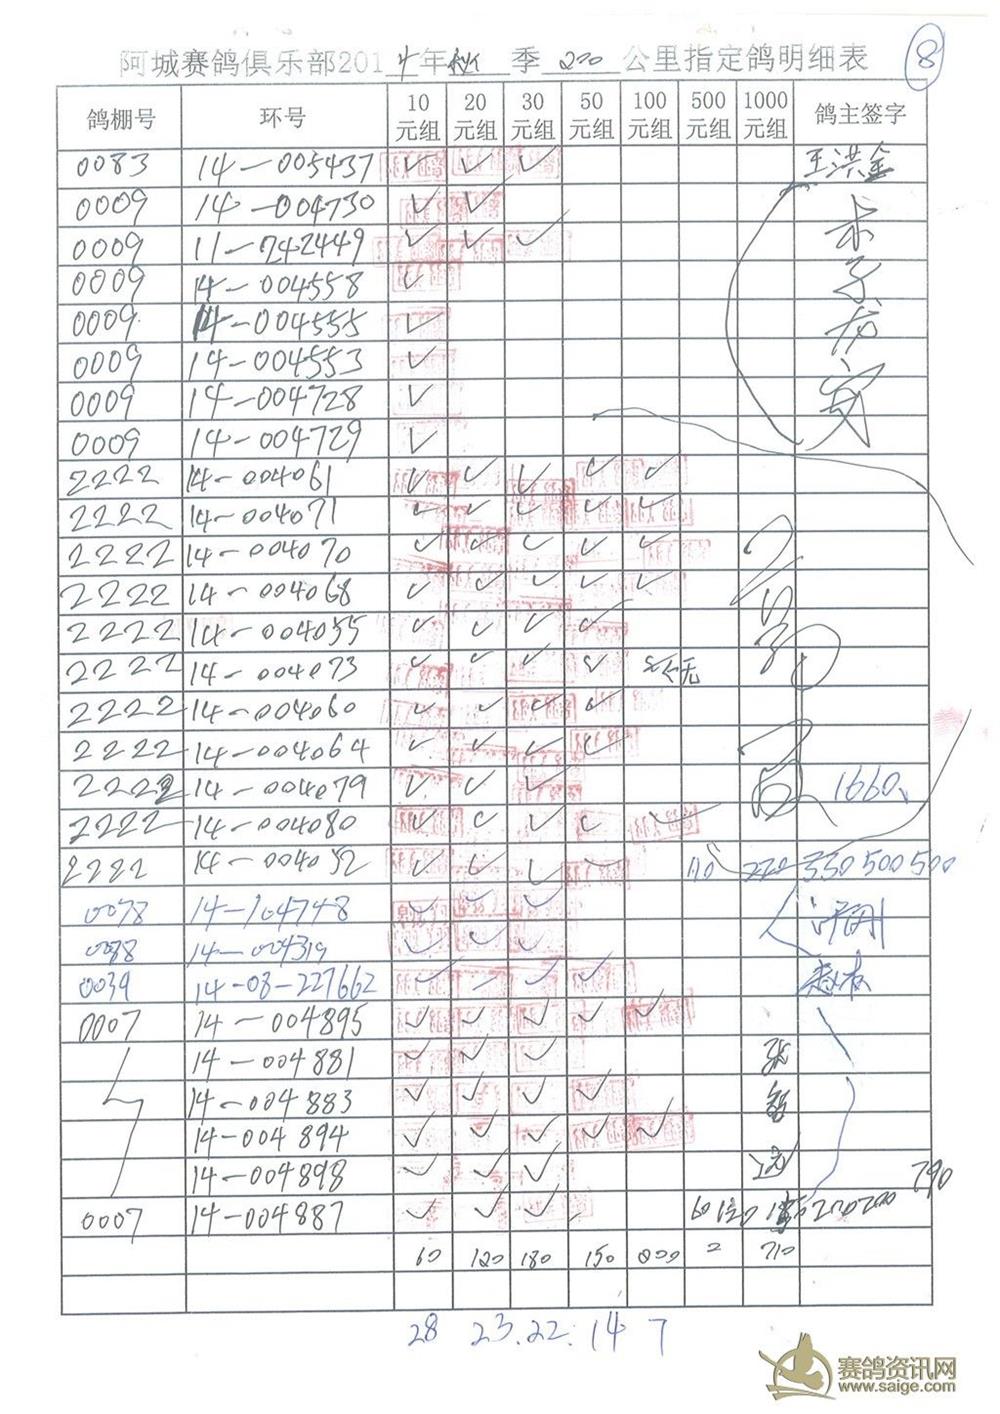 阿城赛鸽俱乐部2014年秋季200公里指定鸽明细表
8
鸽棚号 环号 10元组 20元组 30元组 50元组 100元组 500元组 1000元组 鸽主签字
0083 14-005437 ✓ ✓ ✓ 王洪金
0009 14-004730 ✓ ✓
0009 11-742449 ✓ ✓ ✓
0009 14-004558 ✓
0009 14-004555 ✓
0009 14-004553 ✓
0009 14-004728 ✓
0009 14-004729 ✓
2222 14-004061 ✓ ✓ ✓ ✓ ✓
2222 14-004071 ✓ ✓ ✓ ✓ ✓
2222 14-004070 ✓ ✓ ✓ ✓ ✓
2222 14-004068 ✓ ✓ ✓ ✓ ✓
2222 14-004055 ✓ ✓ ✓ ✓
2222 14-004073 ✓ ✓ ✓ ✓
2222 14-004060 ✓ ✓ ✓ ✓
2222 14-004064 ✓ ✓ ✓ ✓
2222 14-004079 ✓ ✓ ✓ 1660
2222 14-004080 ✓ ✓ ✓ ✓ ✓
2222 14-004052 ✓ ✓ ✓ ✓ 110 220 330 500 500
0078 14-104748 ✓ ✓ ✓
0088 14-004319 ✓ ✓ ✓
0039 14-08-227662 ✓ ✓ ✓ ✓
0007 14-004895 ✓ ✓ ✓ ✓ ✓
14-004881 ✓ ✓ ✓
14-004883 ✓ ✓ ✓ ✓
14-004894 ✓ ✓ ✓ ✓ ✓
14-004898 ✓ ✓ ✓ 790
0007 14-004887 ✓ ✓ ✓ 60 200 200
60 120 180 150 200 = 710
28 23. 22. 14 7
赛鸽资讯网
www.saige.com